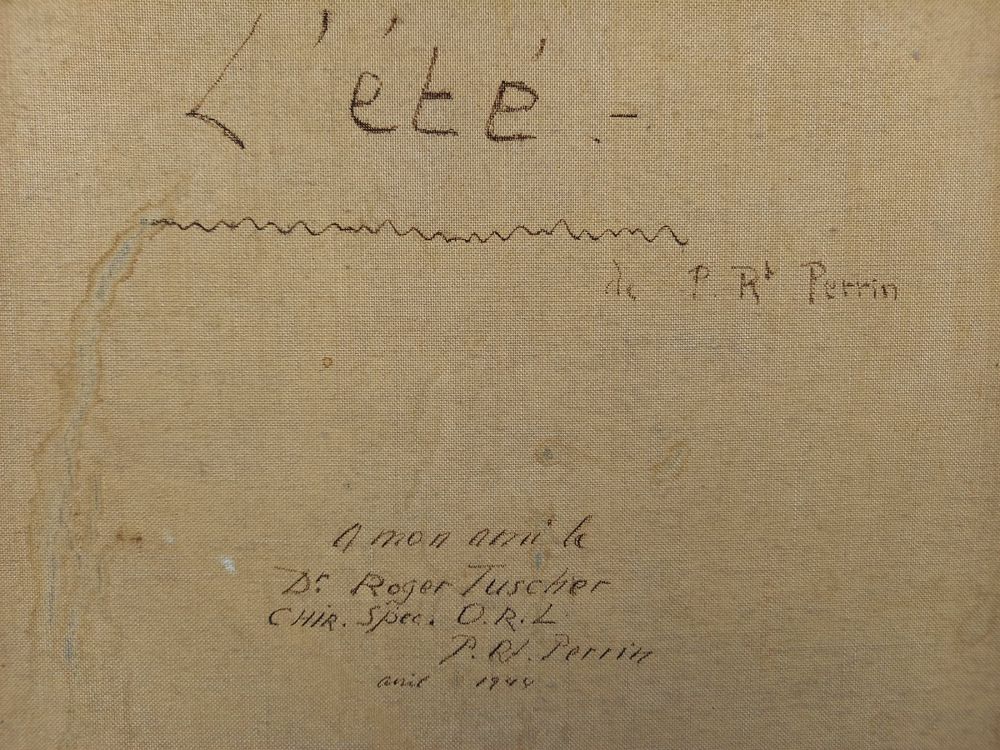 L'été.-
de P. Rt Perrin
A mon ami le
Dr Roger Tuscher
CHIR. Spec. O.R.L
P. Rt. Perrin
avril 1944